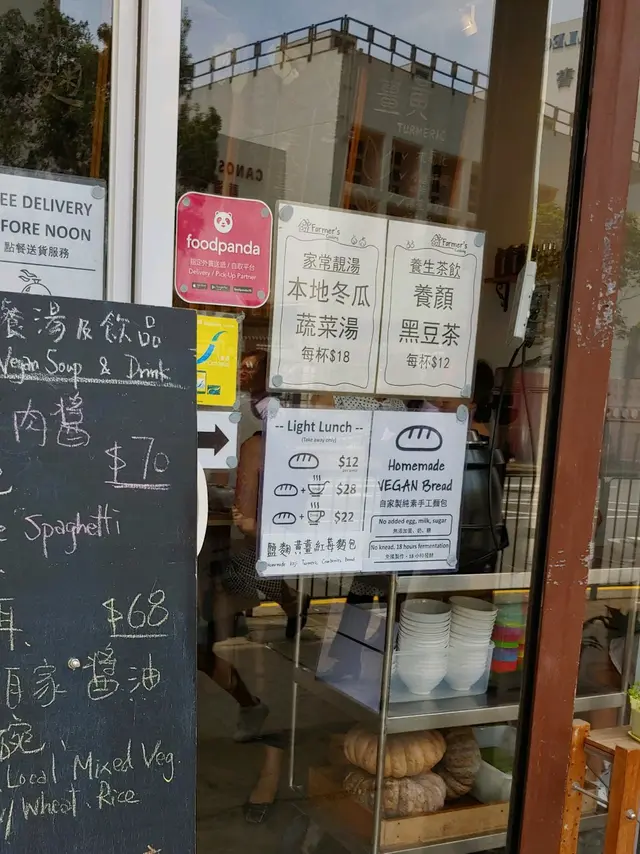 EE DELIVERY
FORE NOON
點餐送貨服務
foodpanda
指定外賣速遞 / 自取平台
Delivery / Pick Up Partner
Farmer's
家常靚湯
本地冬瓜
蔬菜湯
每杯$18
Farmer's
養生茶飲
養顏
黑豆茶
每杯$12
-- Light Lunch --
(Take away only)
$12
+ $28
+ $22
鹽麴黃薑紅莓麵包
Homemade
VEGAN Bread
自家製純素手工麵包
No added egg, milk, sugar
無添加蛋、奶、糖
No knead, 18 hours fermentation
免揉製作、18小時發酵
餐湯及飲品
Vegan Soup & Drink
肉醬
$70
Spaghetti
$68
自家醬油
碗
Local Mixed Veg
w/ Wheat Rice
CANOS